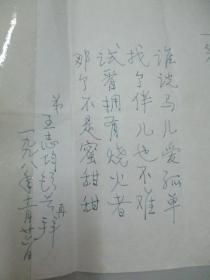 谁说马儿爱孤单
找个伴儿也不难
试着拥有烧火者
那个不是蜜甜甜
弟
王志均 拜
再
一九九八年十一月廿六日